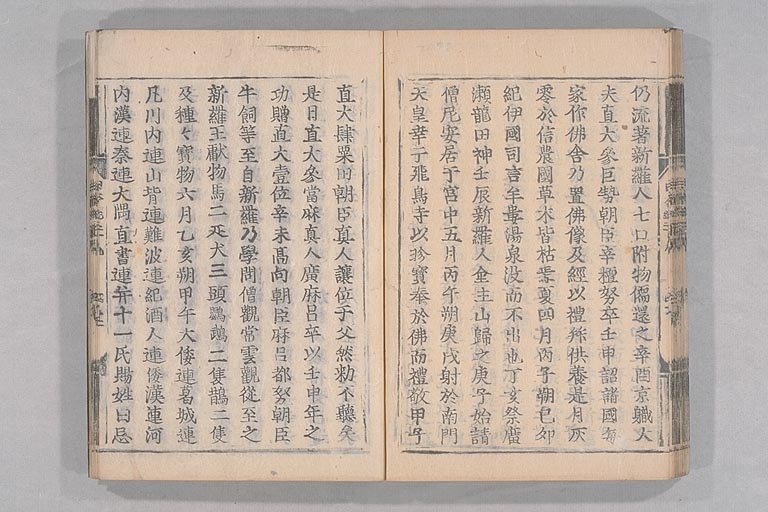 仍流著新羅人七口附物儒還之辛酉京職大
夫直大參巨勢朝臣辛檀努卒壬申詔諸國每
家作佛舍乃置佛像及經以禮拜供養是月灰
零於信農國草木皆枯焉夏四月丙子朔己卯
紀伊國司言牟婁湯泉沒而不出也丁亥祭廣
瀨龍田神壬辰新羅人金主山歸之庚子始請
僧尼安居于宮中五月丙午朔庚戌射於南門
天皇幸于飛鳥寺以珍寶奉於佛而禮敬甲子
直大肆粟田朝臣真人讓位于父然勑不聽矣
是日直大參當麻真人廣麻呂卒以壬申年之
功贈直大壹位辛未髙向朝臣麻呂都努朝臣
牛飼等至自新羅乃學問僧觀常雲觀從至之
新羅王獻物馬二疋犬三頭鸚鵡二隻鵲二隻
及種々寶物六月乙亥朔甲午大倭連葛城連
凡川内連山背連難波連紀酒人連倭漢連河
内漢連秦連大隅直書連并十一氏賜姓曰忌